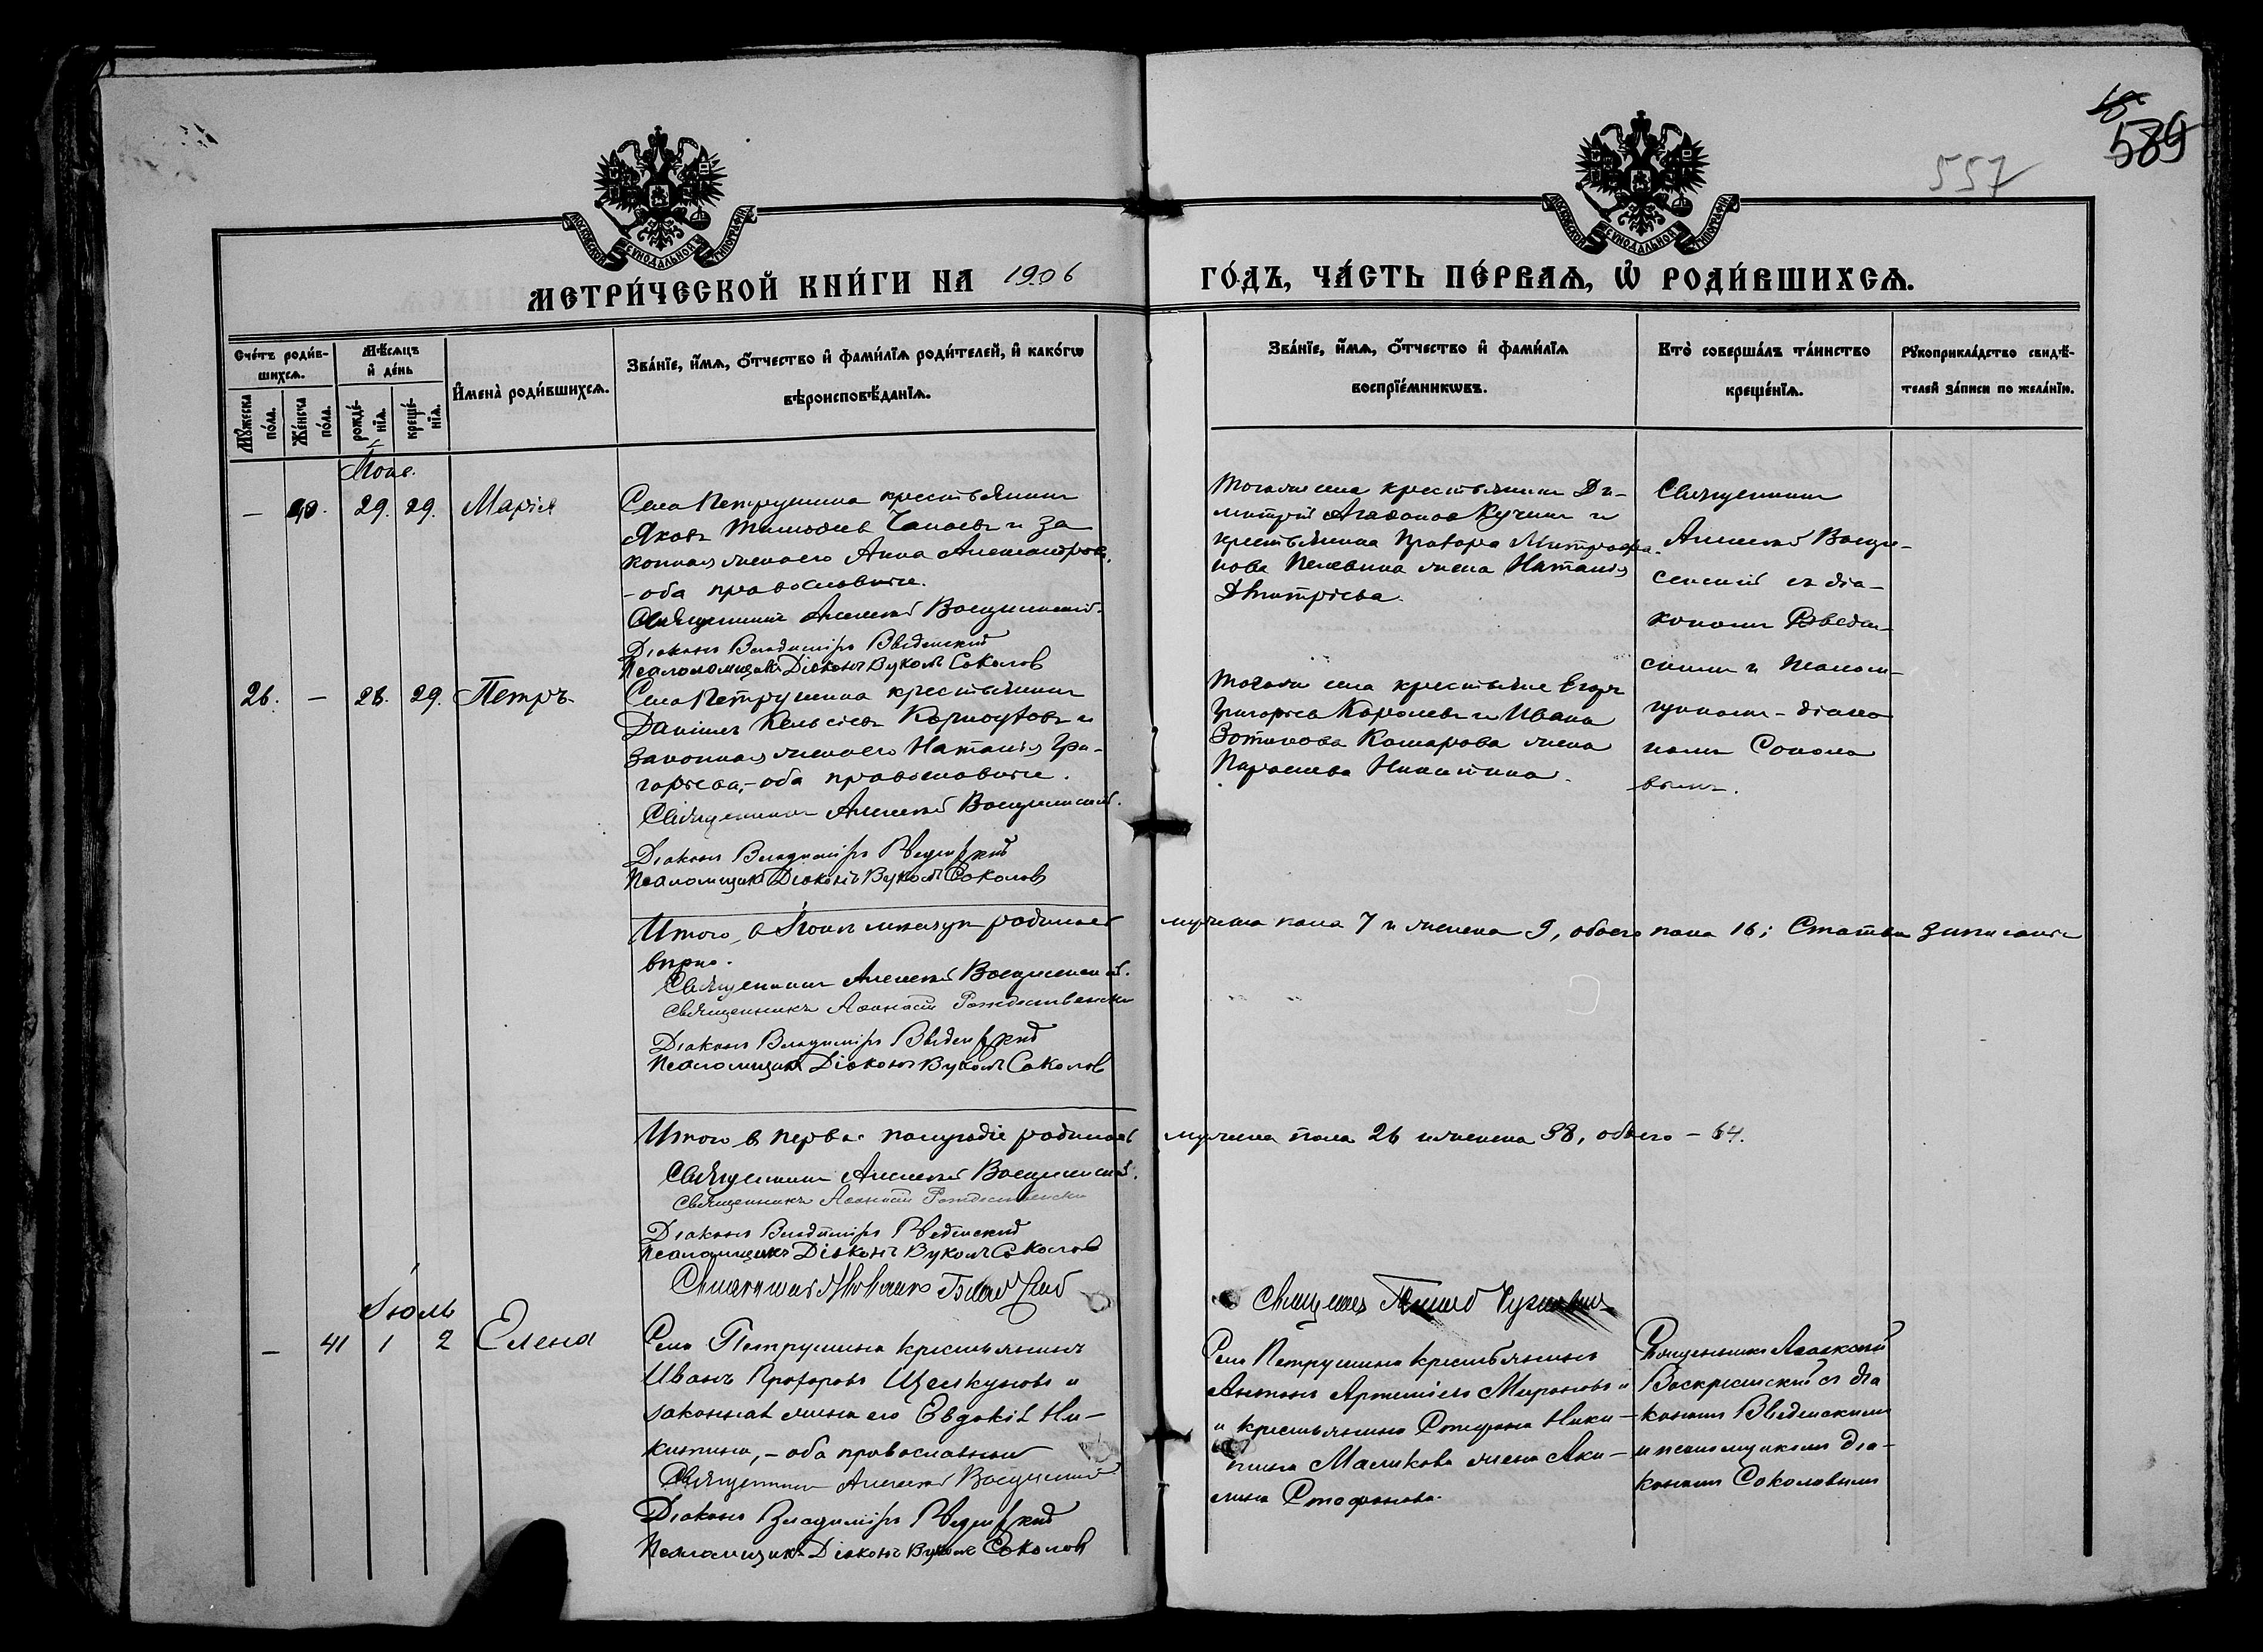 589
557
МОСКОВСКОЙ СѴНОДАЛЬНОЙ ТИПОГРАФІИ
МОСКОВСКОЙ СѴНОДАЛЬНОЙ ТИПОГРАФІИ
МЕТРИ́ЧЕСКОЙ КНИ́ГИ НА 1906 ГО́ДЪ, ЧА́СТЬ ПЕ́РВАѦ, Ѽ РОДИ́ВШИХСѦ.
Сче́тъ роди́в-
шихсѧ.
Мꙋ́жеска по́ла.
Же́нска по́ла.
Мѣ́сѧцъ
и҆ де́нь
рожде́-
нїѧ.
креще́-
нїѧ.
И҆мена̀ роди́вшихсѧ.
Зва́нїе, и҆́мѧ, ѻ҆́тчество и҆ фами́лїѧ роди́телей, и҆ како́гѡ
вѣроисповѣ́данїѧ.
Зва́нїе, и҆́мѧ, ѻ҆́тчество и҆ фами́лїѧ
воспрїе́мникѡвъ.
Кто̀ соверша́лъ та́инство
креще́нїѧ.
Рꙋкоприкла́дство свидѣ́-
телей за́писи по жела́нїю.
Іюнь.
— 40. 29. 29. Марія
Села Петрушина крестьянинъ
Яковъ Тимофеевъ и за
конная жена его Анна Александрова,
- оба православные.
Священникъ Алексей Воскресенский.
Діаконъ Владиміръ Введенский
Псаломщикъ Діаконъ Вуколъ Соколов
Тогоже села крестьянинъ Ди-
митрій Агафонов Кучин и
крестьянина Прохора Митрофа-
нова жена Наталія
Дмитріева.
Священникъ
Алексей Воскре-
сенский съ діа-
кономъ Введен-
скимъ и псалом-
щикомъ-діако
номъ Соколо
вымъ.
26. — 28. 29. Петръ
Села Петрушина крестьянинъ
Даніилъ и
законная жена его Наталія Гри-
горьева, - оба православные.
Священникъ Алексей Воскресенский.
Діаконъ Владиміръ Введенский
Псаломщикъ Діаконъ Вуколъ Соколов
Тогоже села крестьяне Егоръ
Григорьев Королевъ и Ивана
Комарова жена
Параскева Никитина.
Итого, в Іюнѣ месяцѣ родилось мужеска пола 7 и женска 9, обоего пола 16; Статьи записаны
верно.
Священникъ Алексей Воскресенский.
Священникъ Афанасій Рождественскій
Діаконъ Владиміръ Введенский
Псаломщикъ Діаконъ Вуколъ Соколов
Итого в перво. полугодіе родилось мужеска пола 26 и женска 38, обоего - 64.
Священникъ Алексей Воскресенский.
Священникъ Афанасій Рождественскій
Діаконъ Владиміръ Введенский
Псаломщикъ Діаконъ Вуколъ Соколов
Священникъ
Священникъ
Іюль
— 41 1 2 Елена
Села Петрушина крестьянинъ
Иванъ Прохоровъ Щелкуновъ и
законная жена его Евдокія Ни-
китина, - оба православные
Священникъ Алексей Воскресенский
Діаконъ Владиміръ Введенский
Псаломщикъ Діаконъ Вуколъ Соколов
Села Петрушина крестьянинъ
Антонъ Артеміевъ Мироновъ и
и крестьянина Стефана Ники-
тина Маликова жена Аки-
лина Стефанова.
Священникъ Алексей
Воскресенский съ діа
кономъ Введенскимъ
и псаломщикомъ діа-
кономъ Соколовымъ